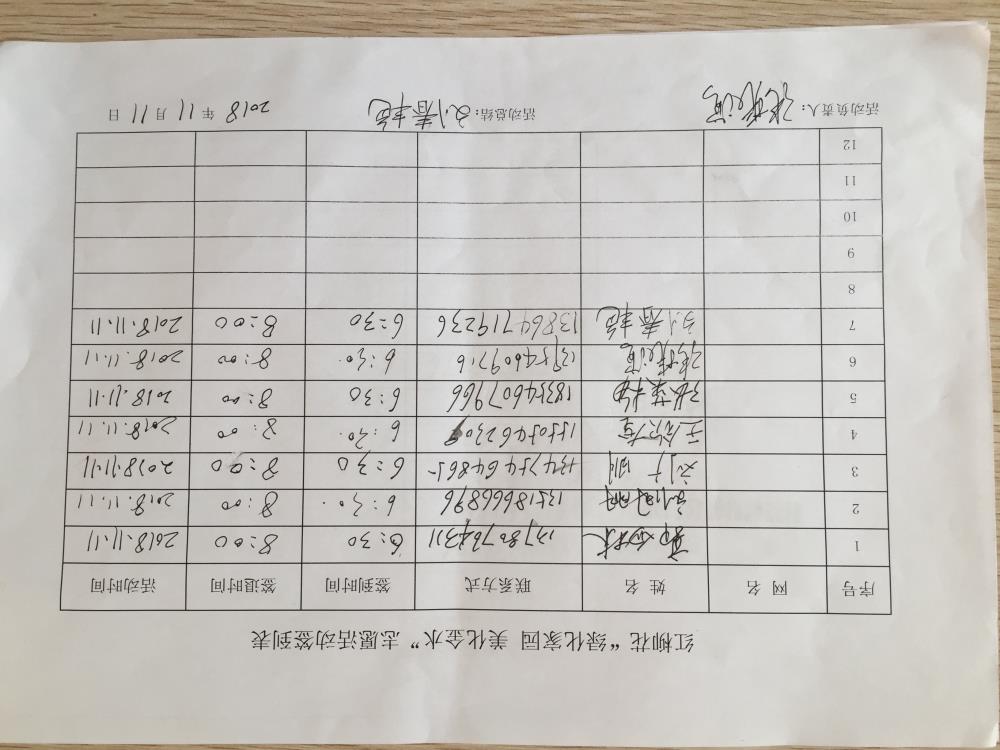 红柳花“绿化家园 美化金水”志愿活动签到表
序号 网名 姓名 联系方式 签到时间 签退时间 活动时间
1 13780764311 6:30 8:00 2018.11.11
2 13518666896 6:30 8:00 2018.11.11
3 刘广明 13475464865 6:30 8:00 2018.11.11
4 6:30 8:00 2018.11.11
5 张荣梅 18354607966 6:30 8:00 2018.11.11
6 13954609716 6:30 8:00 2018.11.11
7 刘春艳 13864719236 6:30 8:00 2018.11.11
8
9
10
11
12
活动负责人: 活动总结:刘春艳 2018年11月11日